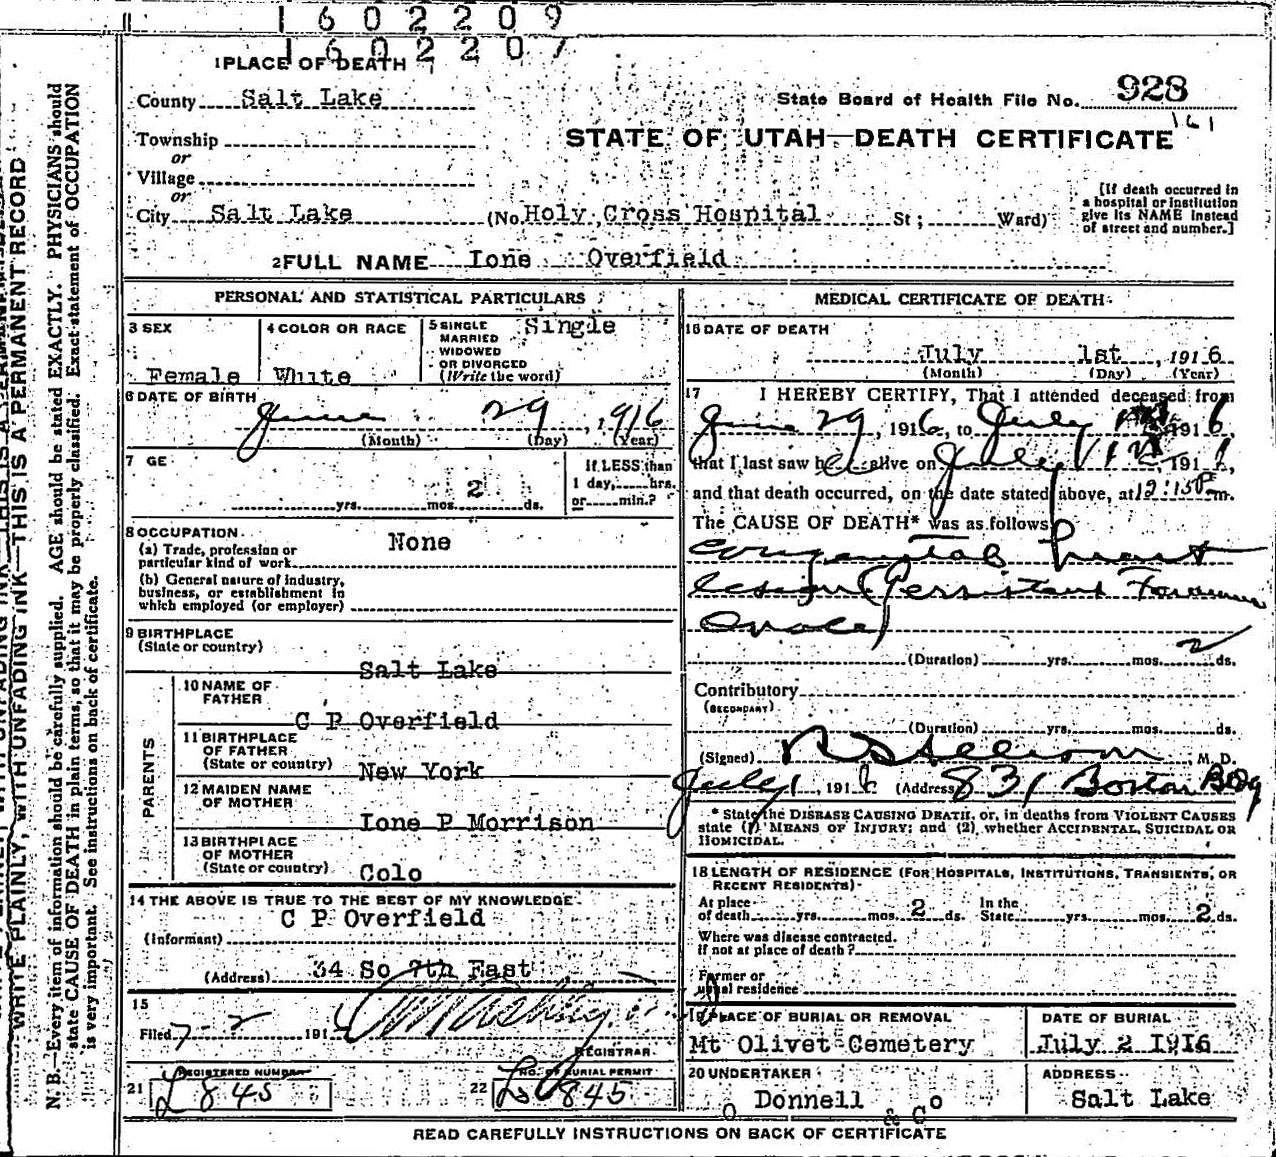 1602209
1602207
1 PLACE OF DEATH
County Salt Lake
State Board of Health File No. 928
161
Township
or
STATE OF UTAH—DEATH CERTIFICATE
Village
or
City Salt Lake (No Holy Cross Hospital St; Ward)
[If death occurred in
a hospital or institution
give its NAME instead
of street and number.]
2 FULL NAME Ione Overfield
PERSONAL AND STATISTICAL PARTICULARS
3 SEX
Female
4 COLOR OR RACE
White
5 SINGLE
MARRIED
WIDOWED
OR DIVORCED
(Write the word)
Single
6 DATE OF BIRTH
June 29, 1916
(Month) (Day) (Year)
7 GE
yrs. mos. 2 ds.
If LESS than
1 day, hrs.
or min.?
8 OCCUPATION
None
(a) Trade, profession or
particular kind of work
(b) General nature of industry,
business, or establishment in
which employed (or employer)
9 BIRTHPLACE
(State or country)
Salt Lake
PARENTS
10 NAME OF
FATHER
C P Overfield
11 BIRTHPLACE
OF FATHER
(State or country)
New York
12 MAIDEN NAME
OF MOTHER
Ione P Morrison
13 BIRTHPLACE
OF MOTHER
(State or country)
Colo
14 THE ABOVE IS TRUE TO THE BEST OF MY KNOWLEDGE
C P Overfield
(Informant)
(Address) 34 So 7th East
15
Filed 7-2 191
REGISTRAR
21 REGISTERED NUMBER
L 845
22 NO. OF BURIAL PERMIT
L 845
MEDICAL CERTIFICATE OF DEATH
16 DATE OF DEATH
July 1st, 1916
(Month) (Day) (Year)
17 I HEREBY CERTIFY, That I attended deceased from
June 29, 1916, to July 191 6,
that I last saw h alive on July 1 191
and that death occurred, on the date stated above, at 12:15 P m.
The CAUSE OF DEATH* was as follows
Congenital heart
lesion (Persistant Foramen
Ovale)
(Duration) yrs. mos. 2 ds.
Contributory
(SECONDARY)
(Duration) yrs. mos. ds.
(Signed) M. D.
July 1, 191 6 (Address 831 Boston Bldg
* State the DISEASE CAUSING DEATH, or, in deaths from VIOLENT CAUSES
state (1) MEANS OF INJURY; and (2) whether ACCIDENTAL, SUICIDAL OR
HOMICIDAL.
18 LENGTH OF RESIDENCE (FOR HOSPITALS, INSTITUTIONS, TRANSIENTS, OR
RECENT RESIDENTS)
At place
of death yrs. mos. 2 ds.
In the
State yrs. mos. 2 ds.
Where was disease contracted.
If not at place of death?
Former or
usual residence
19 PLACE OF BURIAL OR REMOVAL
Mt Olivet Cemetery
DATE OF BURIAL
July 2 1916
20 UNDERTAKER
O Donnell & Co
ADDRESS
Salt Lake
READ CAREFULLY INSTRUCTIONS ON BACK OF CERTIFICATE
WRITE PLAINLY, WITH UNFADING INK—THIS IS A PERMANENT RECORD
N. B.—Every item of information should be carefully supplied. AGE should be stated EXACTLY. PHYSICIANS should
state CAUSE OF DEATH in plain terms, so that it may be properly classified. Exact statement of OCCUPATION
is very important. See instructions on back of certificate.